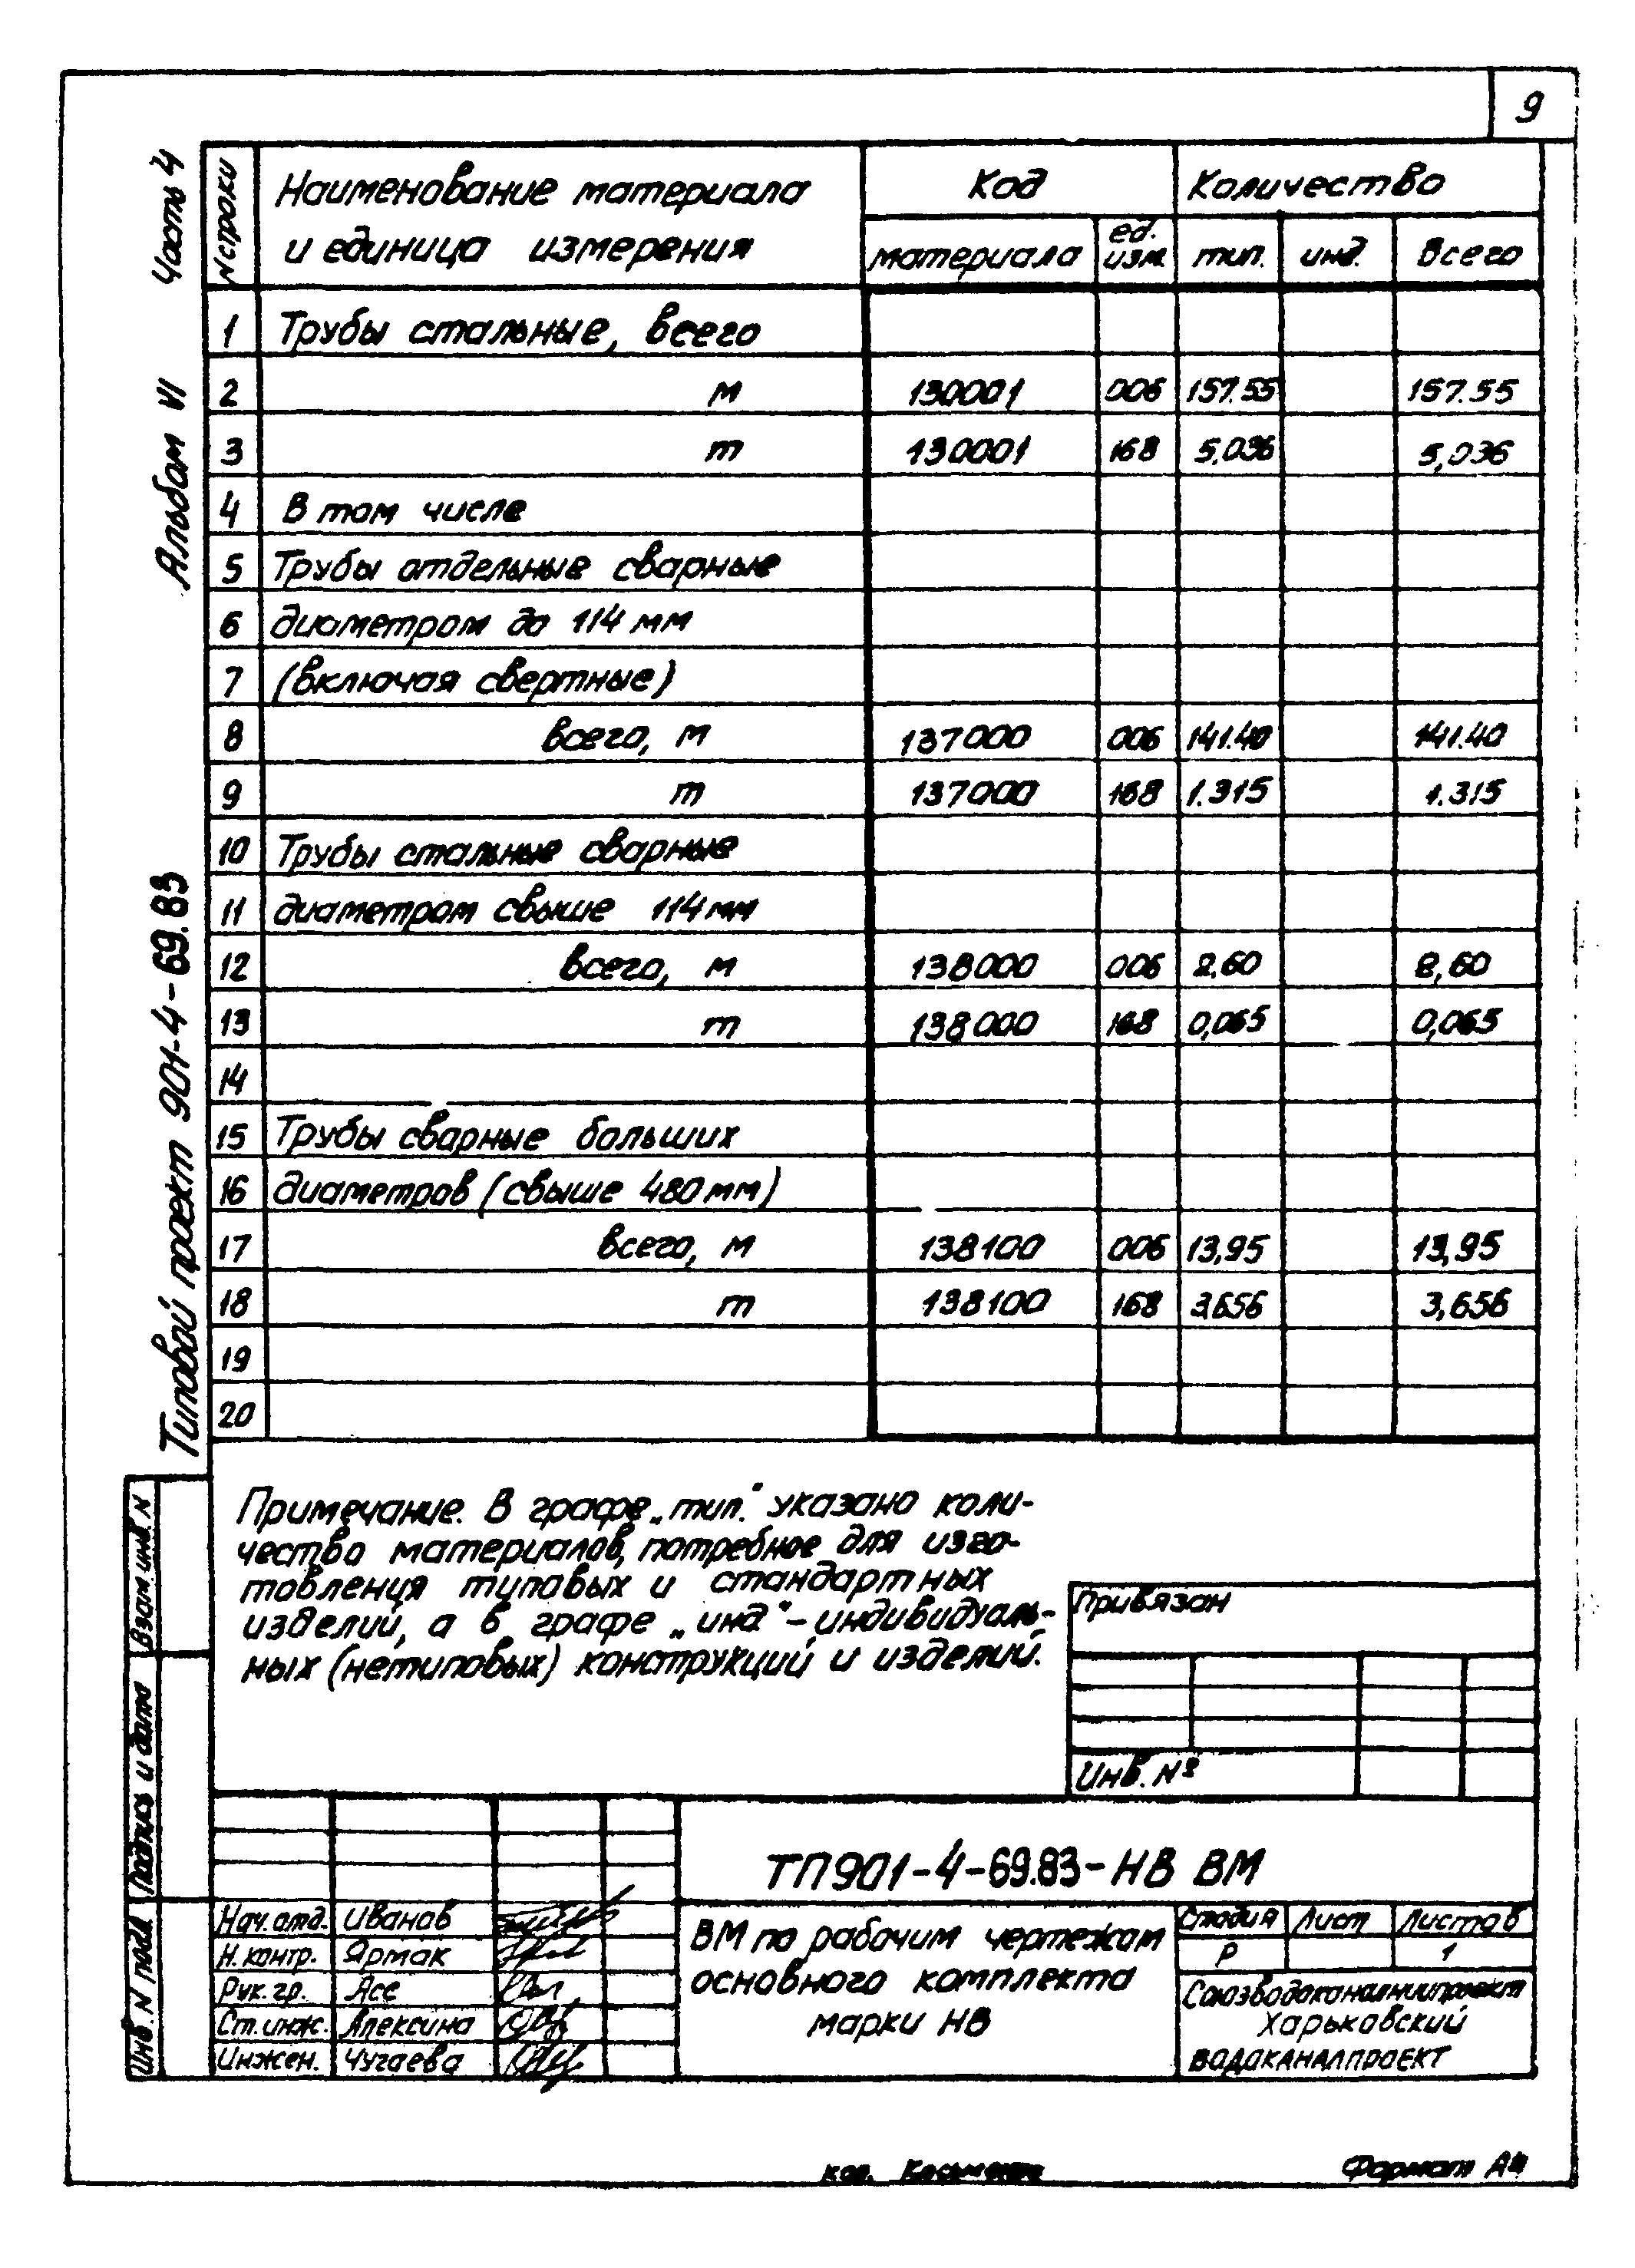 9
Часть 4
Альбом VI
Типовой проект 901-4-69.83
N строки
Наименование материала
и единица измерения
Код
Количество
материала
ед. изм.
тип.
инд.
Всего
1 Трубы стальные, всего
2 м 130001 006 157.55 157.55
3 т 130001 168 5,036 5,036
4 В том числе
5 Трубы отдельные сварные
6 диаметром до 114 мм
7 (включая свертные)
8 всего, м 137000 006 141.40 141.40
9 т 137000 168 1.315 1.315
10 Трубы стальные сварные
11 диаметром свыше 114 мм
12 всего, м 138000 006 2.60 2,60
13 т 138000 168 0,065 0,065
14
15 Трубы сварные больших
16 диаметров (свыше 480 мм)
17 всего, м 138100 006 13,95 13,95
18 т 138100 168 3,656 3,656
19
20
Примечание. В графе „тип." указано коли-
чество материалов, потребное для изго-
товления типовых и стандартных
изделий, а в графе „инд." - индивидуаль-
ных (нетиповых) конструкций и изделий.
Привязан
Инв. №
Взам инв. N
Подпись и дата
Инв. N подл
ТП 901-4-69.83-НВ ВМ
Нач. отд. Иванов
Н. контр. Ярмак
Рук. гр. Ясе
Ст. инж. Алексина
Инжен. Чугаева
ВМ по рабочим чертежам
основного комплекта
марки НВ
Стадия Лист Листов
Р 1
Союзводоканалниипроект
Харьковский
ВОДОКАНАЛПРОЕКТ
коп.
Формат А4